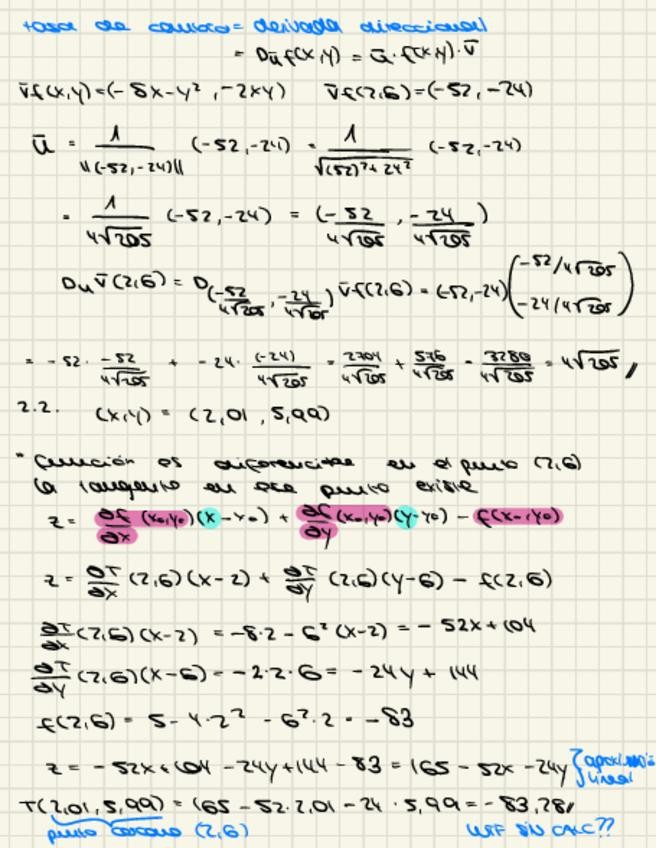 tasa de cambio = derivada direccional
= Dūf(x,y) = ū·f(x,y)·v̄
∇̄f(x,y)=(-8x-y², -2xy) ∇̄f(2,6)=(-52,-24)
ū = 1/||(-52,-24)|| (-52,-24) = 1/√((52)²+24²) (-52,-24)
= 1/4√205 (-52,-24) = (-52/4√205, -24/4√205)
Du ∇̄(2,6) = D(-52/4√205, -24/4√205) ∇̄f(2,6) = (-52,-24) (-52/4√205 -24/4√205)
= -52· -52/4√205 + -24· (-24)/4√205 = 2704/4√205 + 576/4√205 = 3280/4√205 = 4√205 //
2.2. (x,y) = (2,01, 5,99)
* función es diferenciable en el punto (2,6)
la tangente en ese punto existe
z = ∂f/∂x (x₀,y₀)(x-x₀) + ∂f/∂y (x₀,y₀)(y-y₀) - f(x₀,y₀)
z = ∂T/∂x (2,6)(x-2) + ∂T/∂y (2,6)(y-6) - f(2,6)
∂T/∂x (2,6)(x-2) = -8·2 - 6² (x-2) = - 52x + 104
∂T/∂y (2,6)(x-6) = -2·2·6 = - 24y + 144
f(2,6) = 5 - 4·2² - 6²·2 = -83
z = - 52x + 104 - 24y + 144 - 83 = 165 - 52x - 24y
lineal
T(2,01, 5,99) = 165 - 52·2,01 - 24·5,99 = - 83,28 //
punto cercano (2,6) WTF SIN CALC??